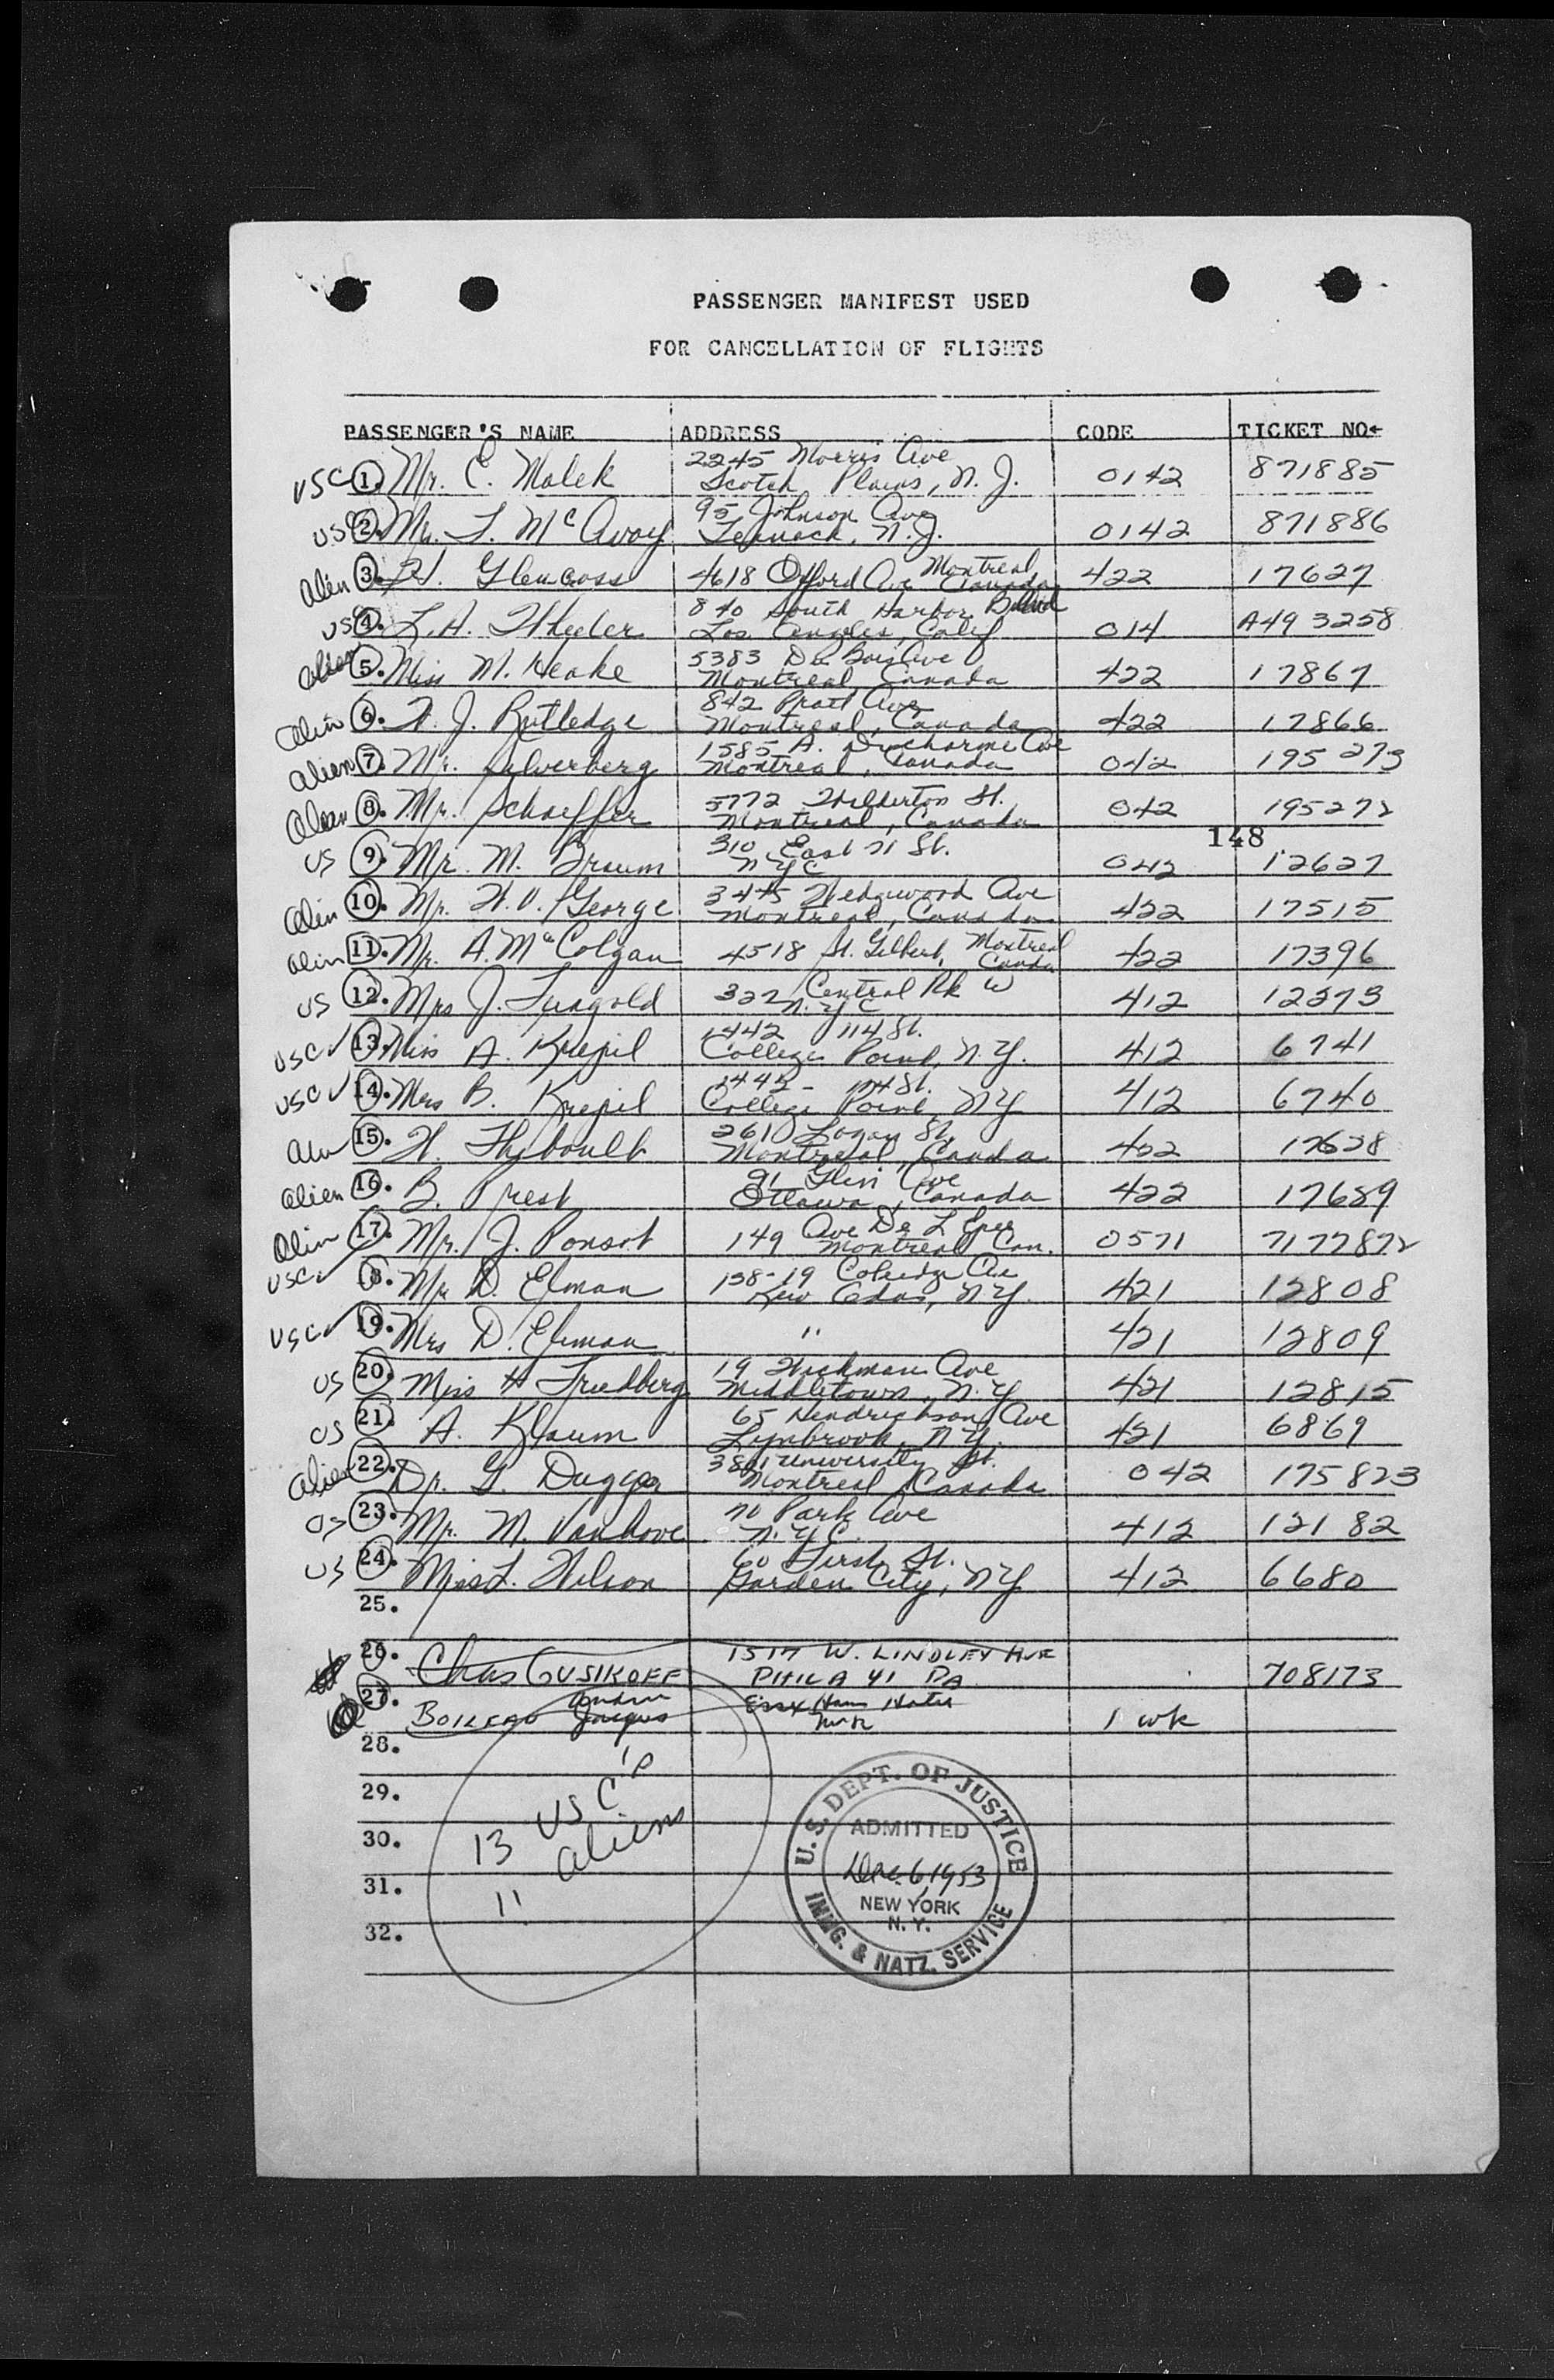 PASSENGER MANIFEST USED
FOR CANCELLATION OF FLIGHTS
PASSENGER'S NAME ADDRESS CODE TICKET NO.
2245 Morris Ave
USC 1. Mr. C. Malek Scotch Plains, N. J. 0142 871885
95 Johnson Ave
US 2. Mr. McAvoy Teaneck, N.J. 0142 871886
Alien 3. Glencoss 4618 Offord Ave Montreal Canada 422 17627
840 South Harbor Blvd
US 4. L.A. Wheeler Los Angeles, Calif 014 A49 3258
5383 De Bois Ave
Alien 5. Miss M. Heake Montreal, Canada 422 17867
842 Pratt Ave
Alien 6. W. J. Rutledge Montreal, Canada 422 17866
1585 A. Ducharme Ave
Alien 7. Mr. Silverberg Montreal, Canada 042 195273
5772 Wilderton St.
Alien 8. Mr. Schaeffer Montreal, Canada 042 195272
148
310 East 71 St.
US 9. Mr. M. Braum NYC 042 12627
3445 Wedgwood Ave
Alien 10. Mr. W.V. George Montreal, Canada 422 17515
Alien 11. Mr. A. McColgan 4518 St. Gilbert, Montreal Canada 422 17396
US 12. Mrs J. Fungold 322 Central Pk W N.Y.C 412 12373
1442 114 St.
USC 13. Miss A. Krejil College Point, N.Y. 412 6741
1442 - 114 St.
USC 14. Mrs B. Krejil College Point, NY 412 6740
2610 Logan St.
15. H. Thiboult Montreal, Canada 422 17628
91 Glen Ave
Alien 16. B. Prest Ottawa, Canada 422 17689
Alien 17. Mr. J. Ponsot 149 Ave De L Epee Montreal Can. 0571 7177872
USC 18. Mr D. Elman 138-19 Coolidge Ave Kew Gdns, N.Y. 421 12808
USC 19. Mrs D. Elman " 421 12809
19 Wickman Ave
US 20. Miss H Friedberg Middletown, N.Y 421 12815
65 Hendrickson Ave
US 21. A. Klaum Lynbrook, N.Y. 421 6869
3801 University St.
Alien 22. Dr. G. Duggar Montreal Canada 042 175823
70 Park Ave
US 23. Mr. M. Vanhove N.Y.C. 412 12182
60 First St.
US 24. Miss L. Wilson Garden City, NY 412 6680
25.
26. Chas GUSIKOFF 1517 W. LINDLEY AVE
PHILA 41 PA 708173
27. BOILEAU Jacques Essex House Hotel 1 wk
28.
29.
30.
31.
32.
13 US C's
11 aliens
U.S. DEPT. OF JUSTICE
ADMITTED
Dec. 6, 1953
NEW YORK
N. Y.
IMMG. & NATZ. SERVICE